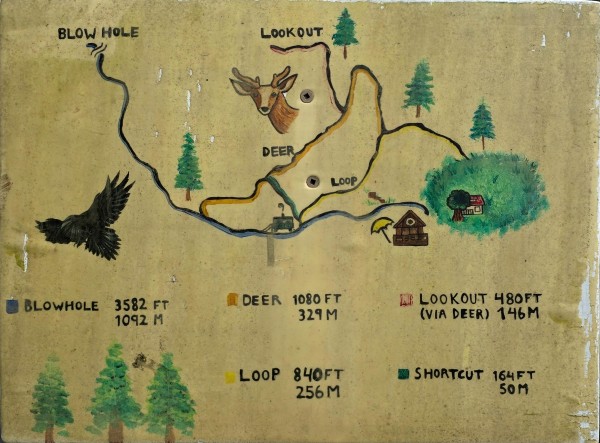 BLOW HOLE
LOOKOUT
DEER
LOOP
BLOWHOLE 3582 FT
1092 M
DEER 1080 FT
329 M
LOOKOUT 480 FT
(VIA DEER) 146 M
LOOP 840 FT
256 M
SHORTCUT 164 FT
50 M